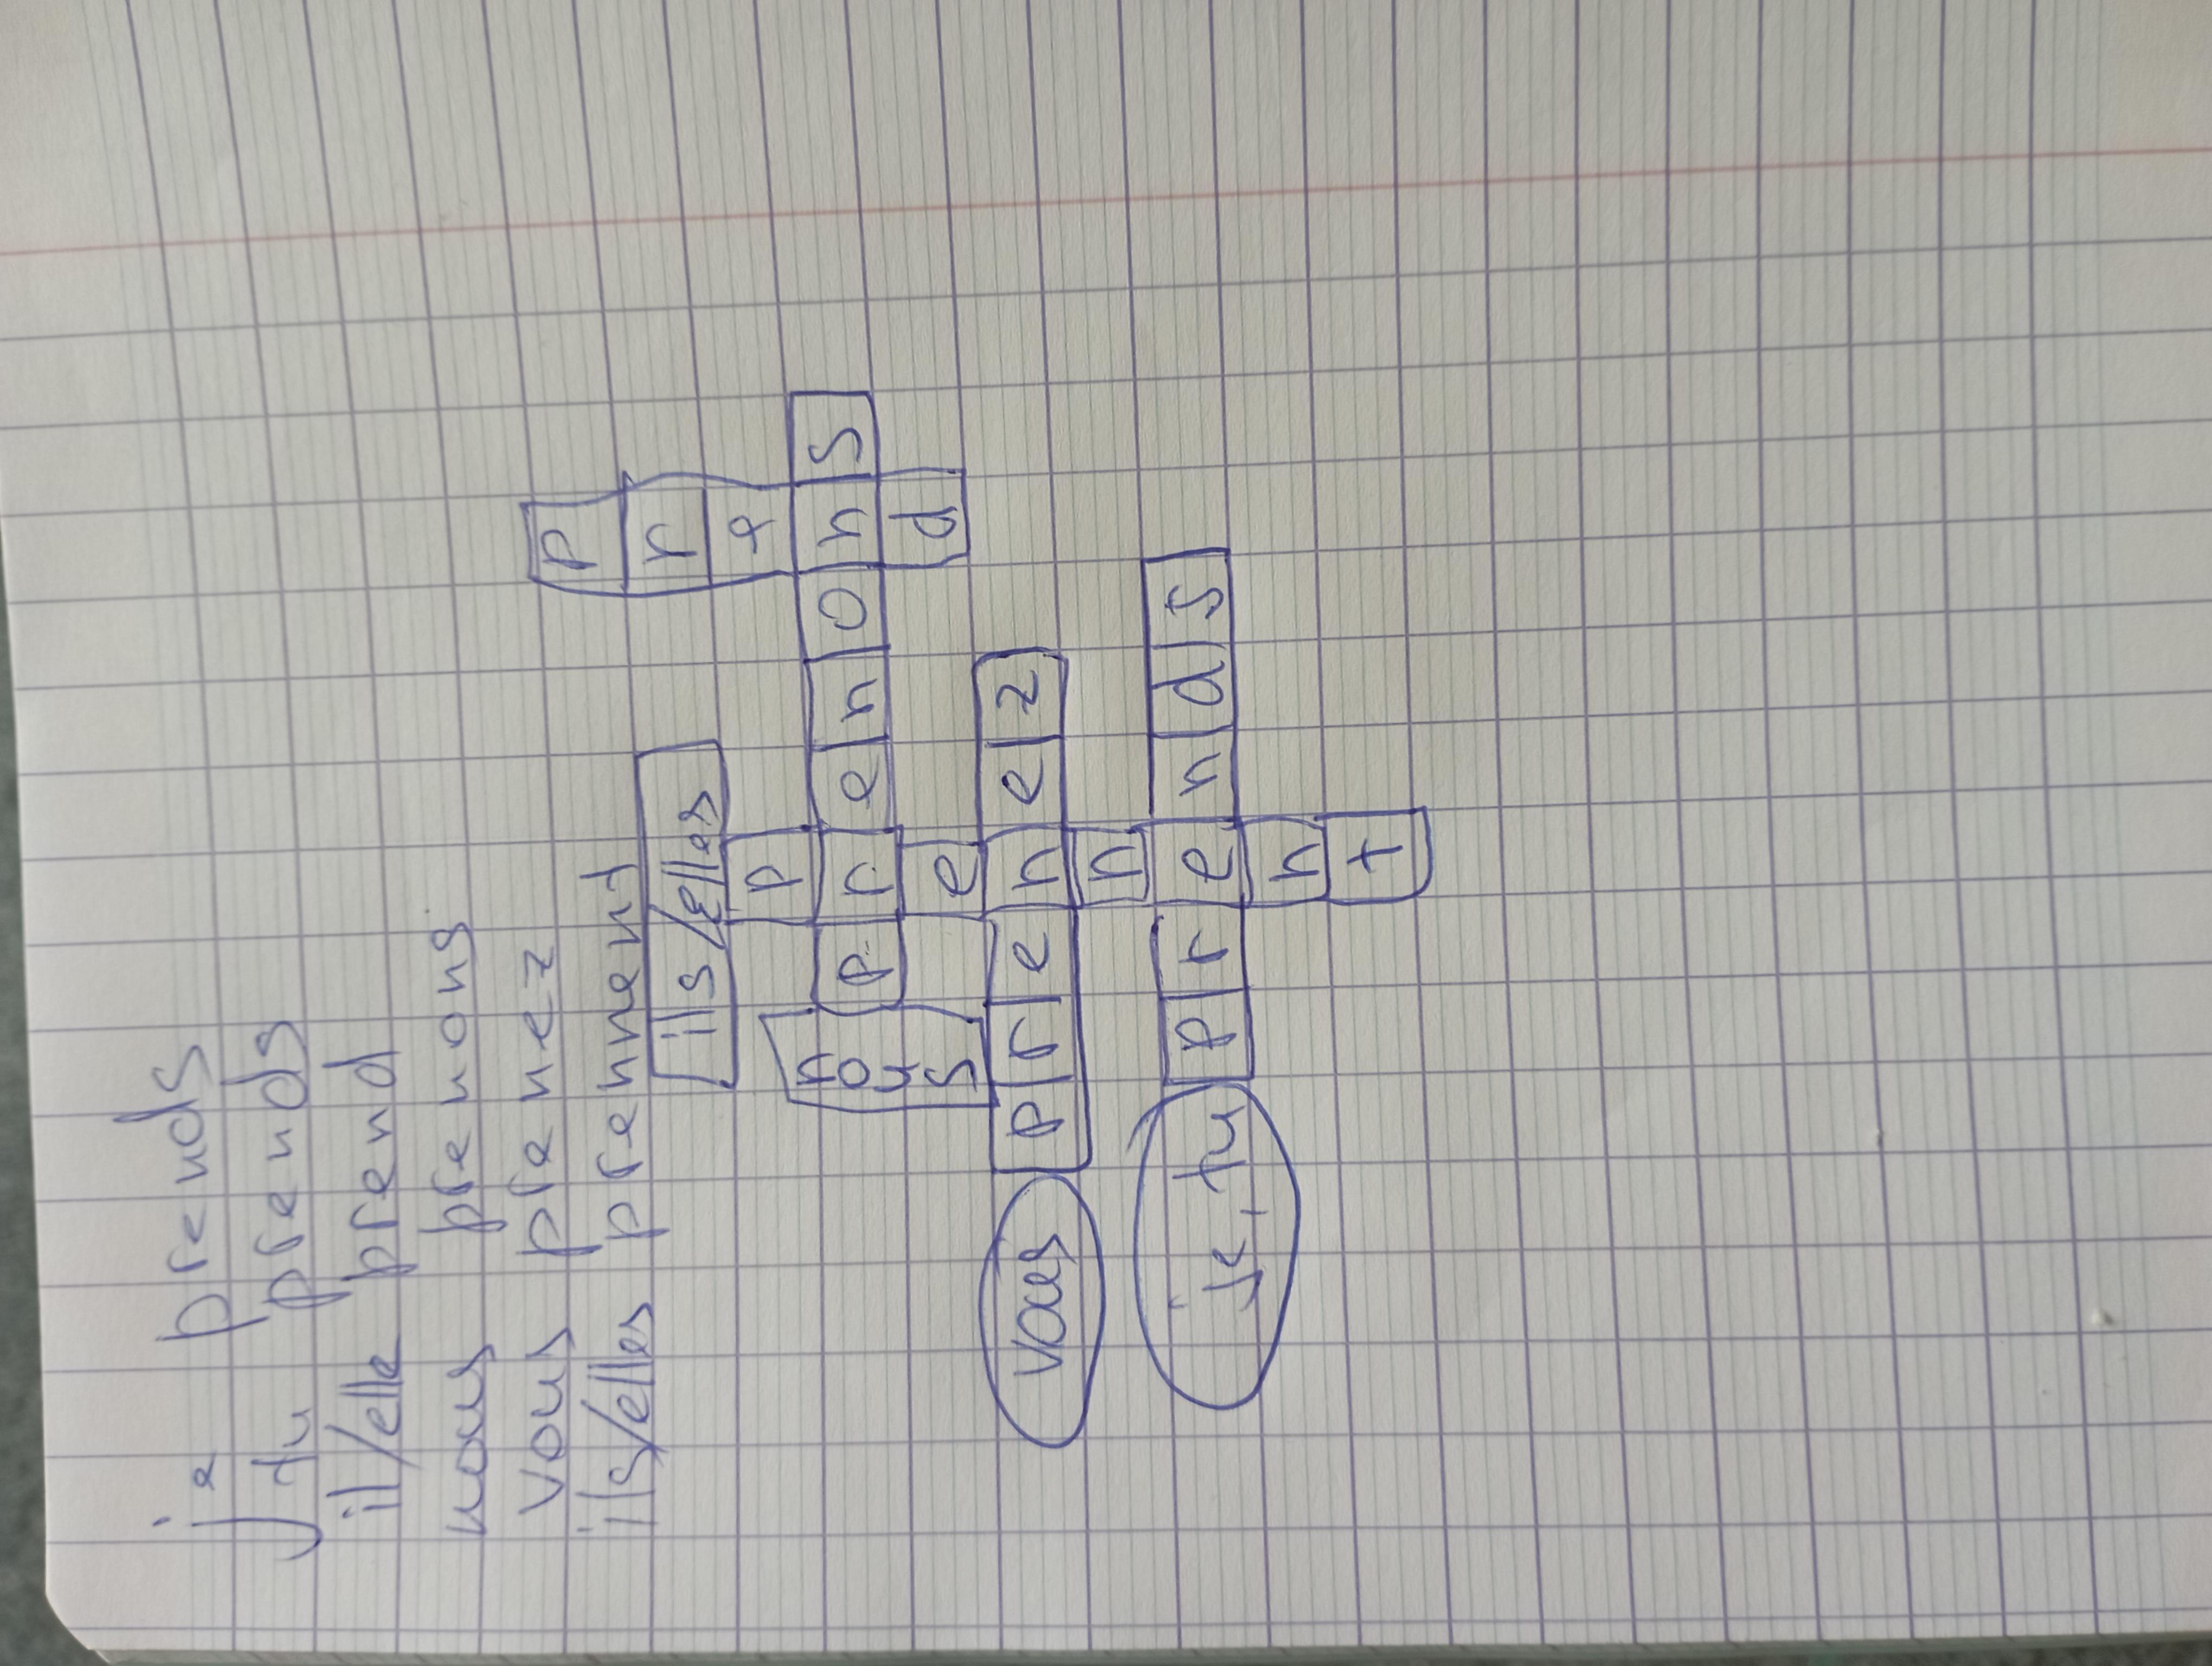 je prends
tu prends
il/elle prend
nous prenons
vous prenez
ils/elles prennent
ils/elles
prend
prennent
nous
prenons
vous prenez
je, tu prends